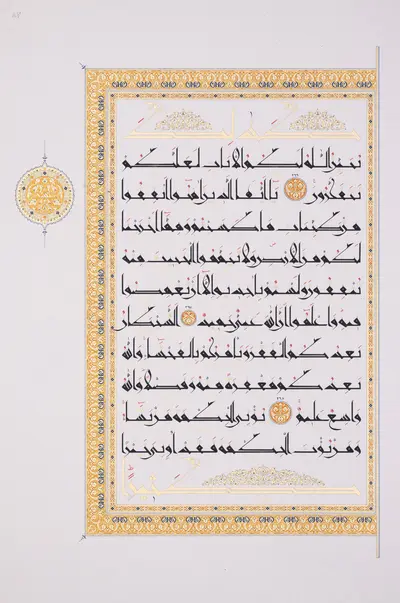 كذلك
يبين الله لكم الآيات لعلكم
تتفكرون يا أيها الذين آمنوا أنفقوا
من طيبات ما كسبتم ومما أخرجنا
لكم من الأرض ولا تيمموا الخبيث منه
تنفقون ولستم بآخذيه إلا أن تغمضوا
فيه واعلموا أن الله غني حميد الشيطان
يعدكم الفقر ويأمركم بالفحشاء والله
يعدكم مغفرة منه وفضلا والله
واسع عليم يؤتي الحكمة من يشاء
ومن يؤت الحكمة فقد أوتي خيرا
كثيرا